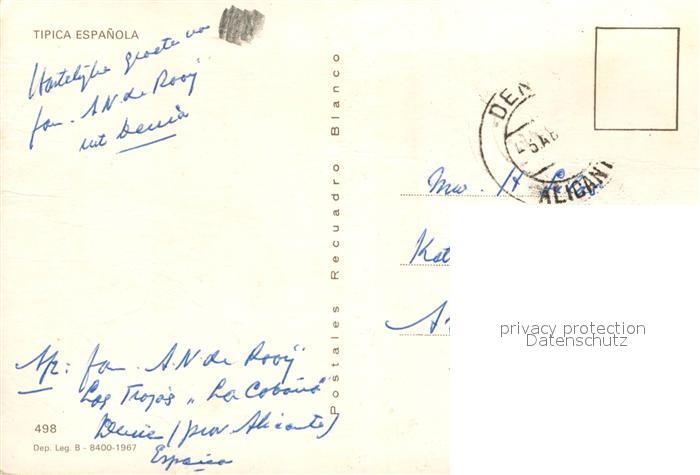 TIPICA ESPAÑOLA
Hartelijke groeten van
fam. A.N. de Rooij
uit Denia
Postales Recuadro Blanco
DEN
ALICANT
Mw. H.
privacy protection
Datenschutz
Afz: fam. A.N. de Rooij
Las Trojas „La Cobaña"
Denia (prov Alicante)
España
498
Dep. Leg. B - 8400-1967